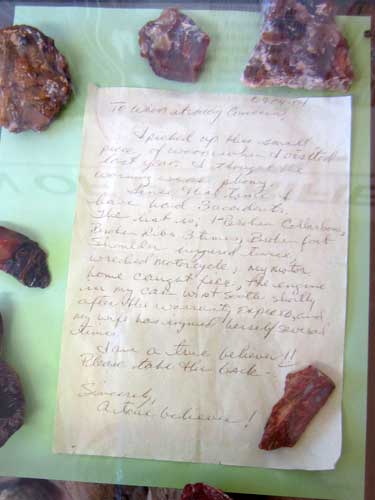 To Whom it may Concern
I picked up this small
piece of wood when I visited
last year. I thought the
warning was phony.
Since that time I
have had Bad
The list is, 1 Broken Collarbone,
Broken Ribs 3 times, Broken foot
Shoulder injured twice,
wrecked motorcycle, my motor
home caught fire, the engine
in my car went South shortly
after the warranty expired, and
my wife has injured herself several
times.
I am a true believer!!
Please take this back.
Sincerely,
A true believer!